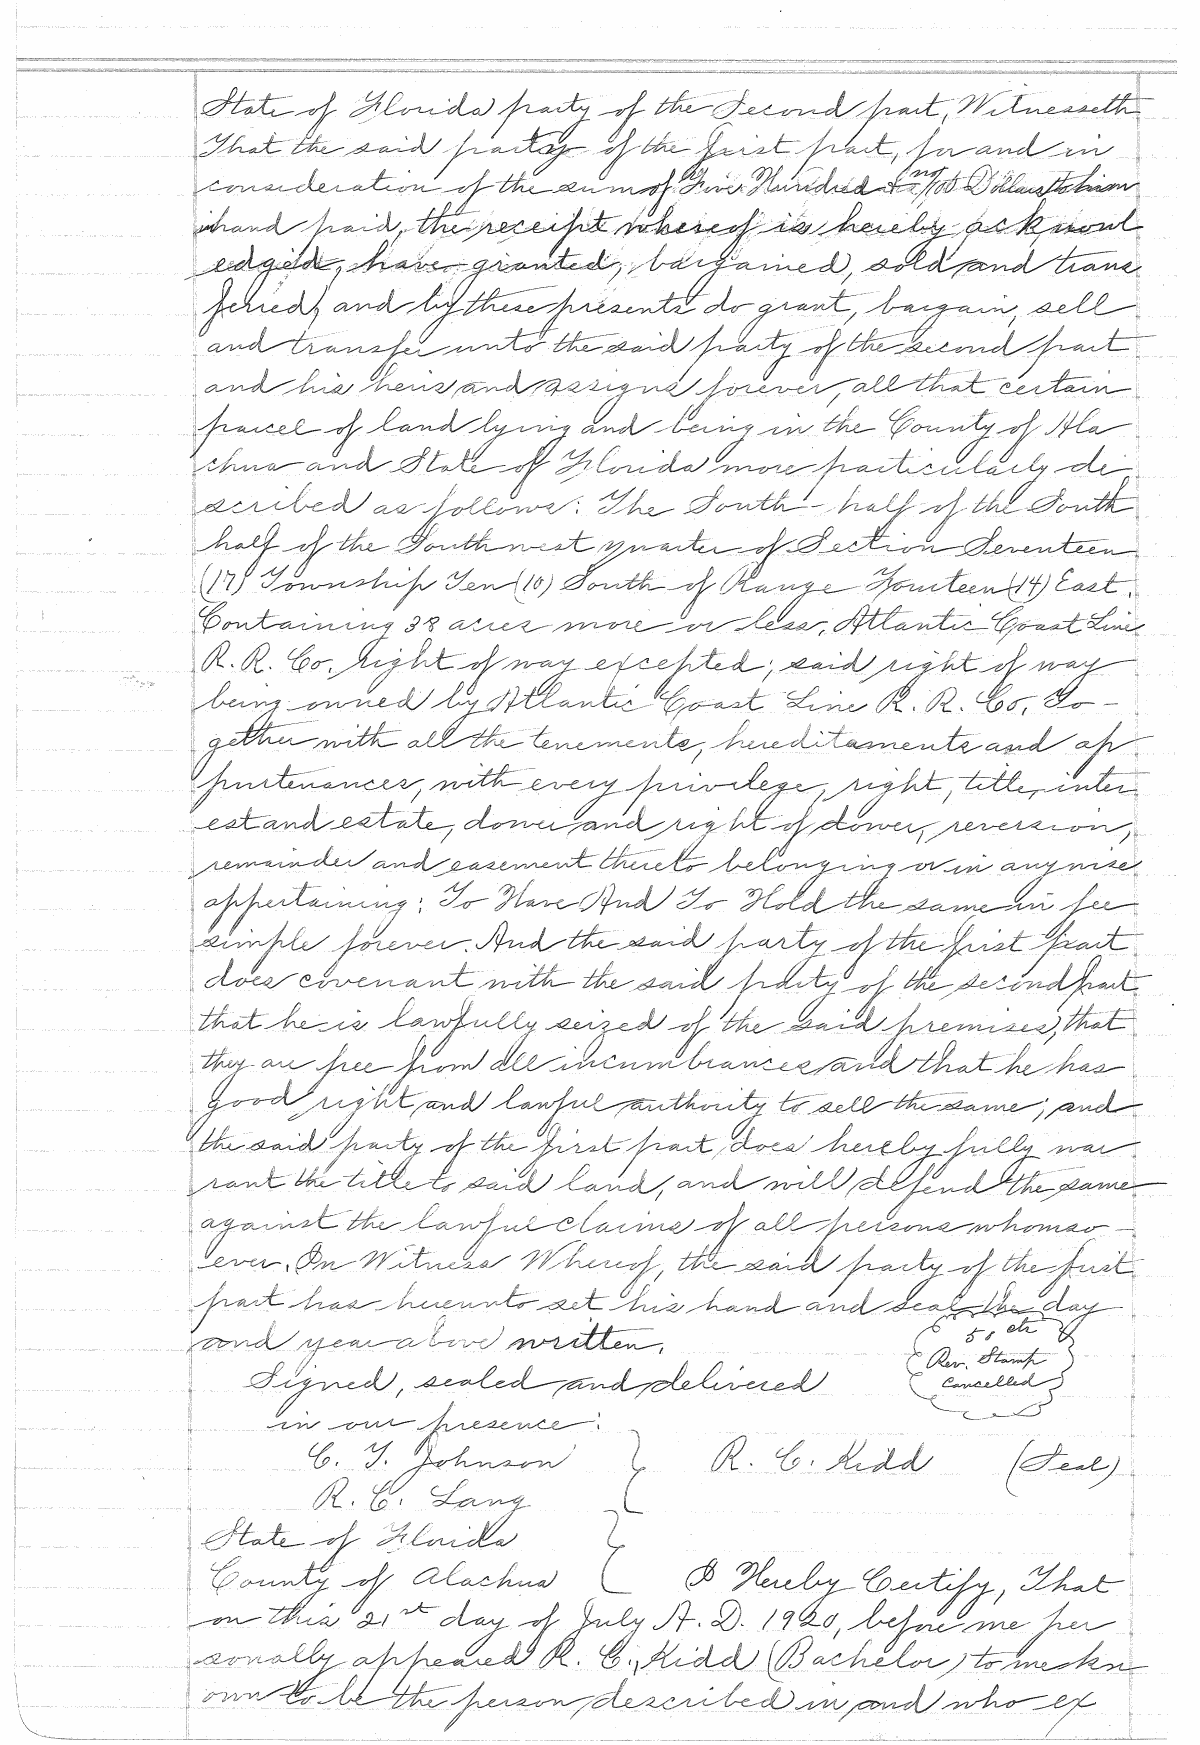 State of Florida party of the Second part, Witnesseth
That the said party of the first part, for and in
consideration of the sum of Five Hundred & no/100 Dollars to him
in hand paid, the receipt whereof is hereby acknowl
edged, have granted, bargained, sold and trans
ferred, and by these presents do grant, bargain, sell
and transfer unto the said party of the second part
and his heirs and assigns forever, all that certain
parcel of land lying and being in the County of Ala
chua and State of Florida more particularly de
scribed as follows: The South-half of the South
half of the Southwest quarter of Section Seventeen
(17) Township Ten (10) South of Range Fourteen (14) East.
Containing 38 acres more or less, Atlantic Coast Line
R. R. Co. right of way excepted; said right of way
being owned by Atlantic Coast Line R. R. Co, To-
gether with all the tenements, hereditaments and ap
purtenances, with every privilege, right, title, inter
est and estate, dower and right of dower, reversion,
remainder and easement thereto belonging or in anywise
appertaining: To Have And To Hold the same in fee
simple forever. And the said party of the first part
does covenant with the said party of the second part
that he is lawfully seized of the said premises, that
they are free from all incumbrances and that he has
good right and lawful authority to sell the same; and
the said party of the first part does hereby fully war
rant the title to said land, and will defend the same
against the lawful claims of all persons whomso-
ever. In Witness Whereof, the said party of the first
part has hereunto set his hand and seal the day
and year above written.
50 cts
Rev. Stamp
Cancelled
Signed, sealed and delivered
in our presence:
C. T. Johnson R. C. Kidd (Seal)
R. C. Lang
State of Florida
County of Alachua I Hereby Certify, That
on this 21st day of July A. D. 1920, before me per
sonally appeared R. C. Kidd (Bachelor) to me kn
own to be the person described in and who ex